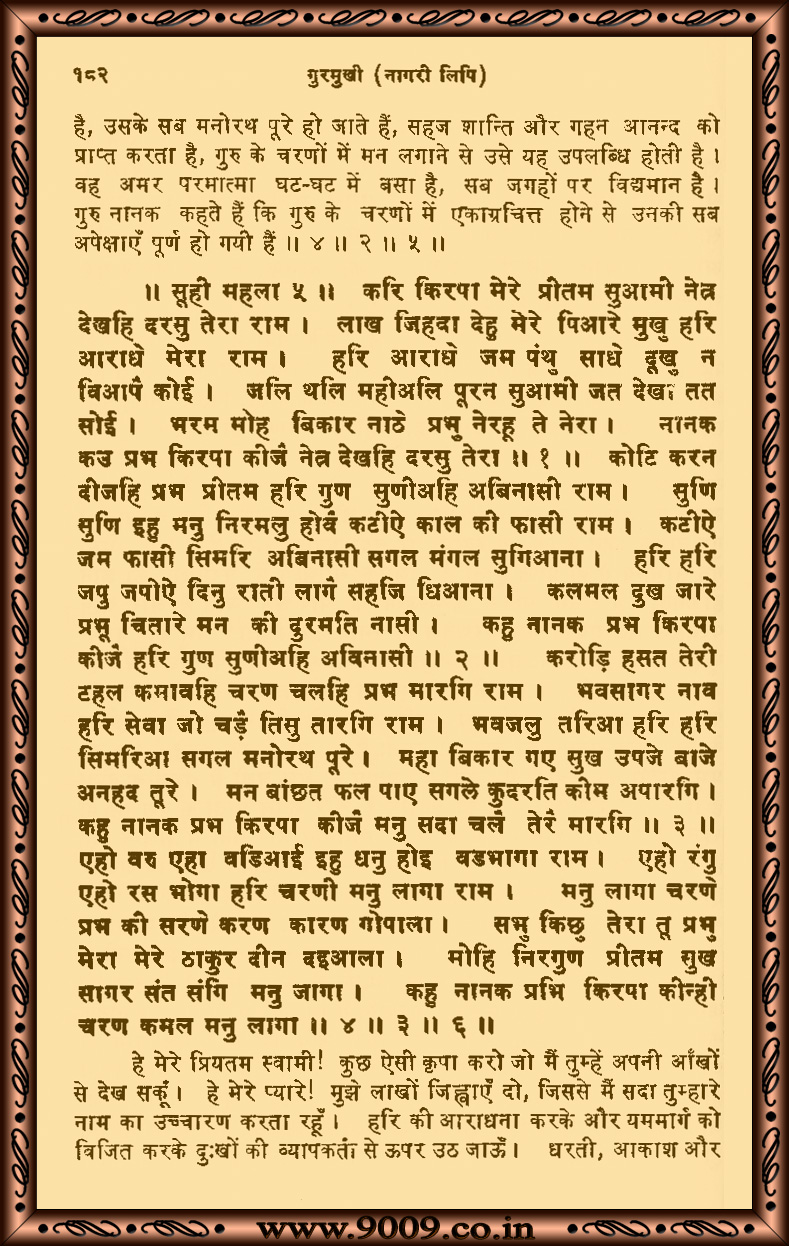 १८२ गुरमुखी (नागरी लिपि)
है, उसके सब मनोरथ पूरे हो जाते हैं, सहज शान्ति और गहन आनन्द को
प्राप्त करता है, गुरु के चरणों में मन लगाने से उसे यह उपलब्धि होती है ।
वह अमर परमात्मा घट-घट में बसा है, सब जगहों पर विद्यमान है ।
गुरु नानक कहते हैं कि गुरु के चरणों में एकाग्रचित्त होने से उनकी सब
अपेक्षाएँ पूर्ण हो गयी हैं ॥ ४ ॥ २ ॥ ५ ॥
॥ सूही महला ५ ॥ करि किरपा मेरे प्रीतम सुआमी नेत्र
देखहि दरसु तेरा राम । लाख जिहवा देहु मेरे पिआरे मुखु हरि
आराधे मेरा राम । हरि आराधे जम पंथु साधे दूखु न
बिआपै कोई । जलि थलि महीअलि पूरन सुआमी जत देखा तत
सोई । भरम मोह बिकार नाठे प्रभु नेरहू ते नेरा । नानक
कउ प्रभ किरपा कीजै नेत्र देखहि दरसु तेरा ॥ १ ॥ कोटि करन
दीजहि प्रभ प्रीतम हरि गुण सुणीअहि अबिनासी राम । सुणि
सुणि इहु मनु निरमलु होवै कटीऐ काल की फासी राम । कटीऐ
जम फासी सिमरि अबिनासी सगल मंगल सुगिआना । हरि हरि
जपु जपीऐ दिनु राती लागै सहजि धिआना । कलमल दुख जारे
प्रभू चितारे मन की दुरमति नासी । कहु नानक प्रभ किरपा
कीजै हरि गुण सुणीअहि अविनासी ॥ २ ॥ करोड़ि हसत तेरी
टहल कमावहि चरण चलहि प्रभ मारगि राम । भवसागर नाव
हरि सेवा जो चड़ै तिसु तारगि राम । भवजलु तरिआ हरि हरि
सिमरिआ सगल मनोरथ पूरे । महा बिकार गए सुख उपजे बाजे
अनहद तूरे । मन बांछत फल पाए सगले कुदरति कीम अपारगि ।
कहु नानक प्रभ किरपा कीजै मनु सदा चलै तेरै मारगि ॥ ३ ॥
एहो वरु एहा वडिआई इहु धनु होइ वडभागा राम । एहो रंगु
एहो रस भोगा हरि चरणी मनु लागा राम । मनु लागा चरणे
प्रभ की सरणे करण कारण गोपाला । सभु किछु तेरा तू प्रभु
मेरा मेरे ठाकुर दीन दइआला । मोहि निरगुण प्रीतम सुख
सागर संत संगि मनु जागा । कहु नानक प्रभि किरपा कीन्ही
चरण कमल मनु लागा ॥ ४ ॥ ३ ॥ ६ ॥
हे मेरे प्रियतम स्वामी! कुछ ऐसी कृपा करो जो मैं तुम्हें अपनी आँखों
से देख सकूँ। हे मेरे प्यारे! मुझे लाखों जिह्वाएँ दो, जिससे मैं सदा तुम्हारे
नाम का उच्चारण करता रहूँ । हरि की आराधना करके और यममार्ग को
विजित करके दुःखों की व्यापकता से ऊपर उठ जाऊँ । धरती, आकाश और
www.9009.co.in